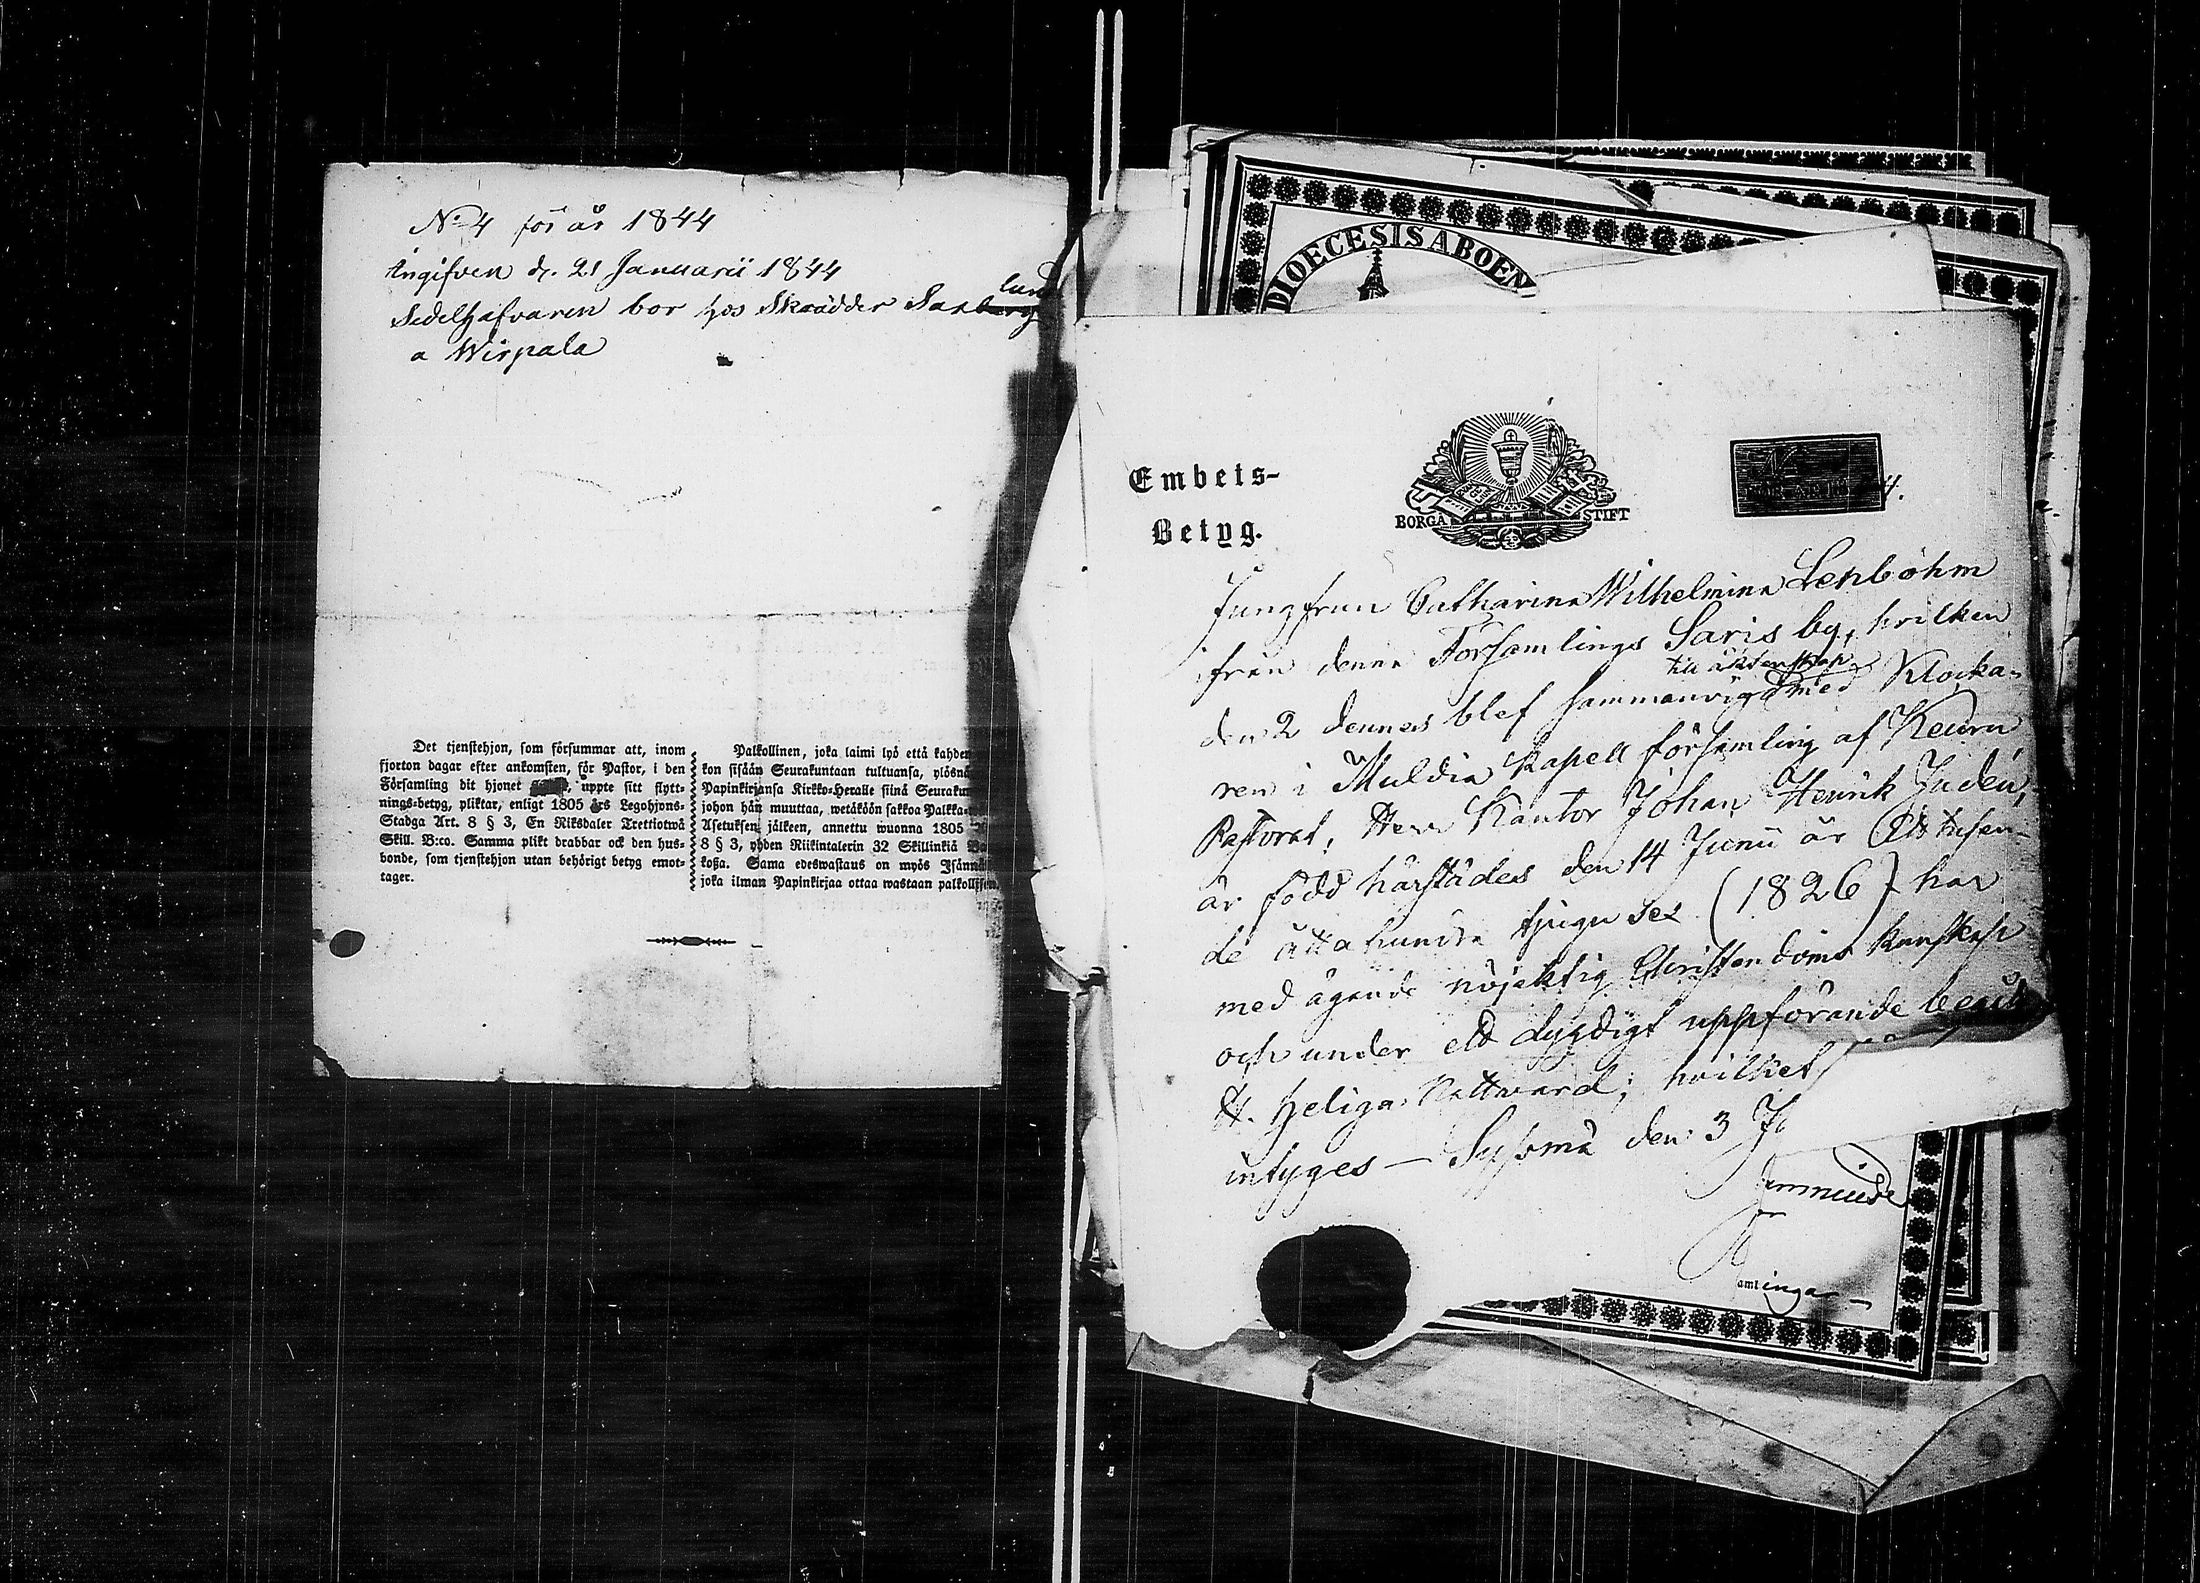 No 4 för år 1844
Ingifven d. 21 Januarii 1844
lund
Sedelhafvaren bor hos Skrädder Saxberg
a Wirpala
Det tjenstehjon, som försummar att, inom
fjorton dagar efter ankomsten, för Pastor, i den
Församling dit hjonet uppte sitt flytt-
nings-betyg, pliktar, enligt 1805 års Legohjons-
Stadga Art. 8 § 3, En Riksdaler Trettiotwå
Skill. B:co. Samma plikt drabbar ock den hus-
bonde, som tjenstehjon utan behörigt betyg emot-
tager.
Palkollinen, joka laimi lyö että kahden
kon sisään Seurakuntaan tultuansa, ylösnä
Papinkirjansa Kirkko-Heralle siinä Seuraku
johon hän muuttaa, wetäköön sakkoa Palkka-
Asetuksen jälkeen, annettu wuonna 1805
8 § 3, yhden Riikintalerin 32 Skillinkiä Ba
koßa. Sama edeswastaus on myös Isännä
joka ilman Papinkirjaa ottaa wastaan palkollisen.
DIOECESIS ABOEN
Embets-
Betyg.
BORGÅ STIFT
4.
Jungfrun Catharina Wilhelmina Lenböhm
från denna Församlings Saris by, hvilken
till äktenskap
den 2 dennes blef sammanvigd med Klocka-
ren i Muldia Kapell församling af Keuru
Pastorat, Herr Kantor Johan Henrik Judén,
är född härstädes den 14 Junii år Ett tusen-
de åttahundra tjugu sex (1826) har
med ägande nöjaktig Christendoms kunskap
och under ett dygdigt uppförande begått
H. Heliga Nattvard; hvilket
intyges — Sysmä den 3 Ja
amtinga